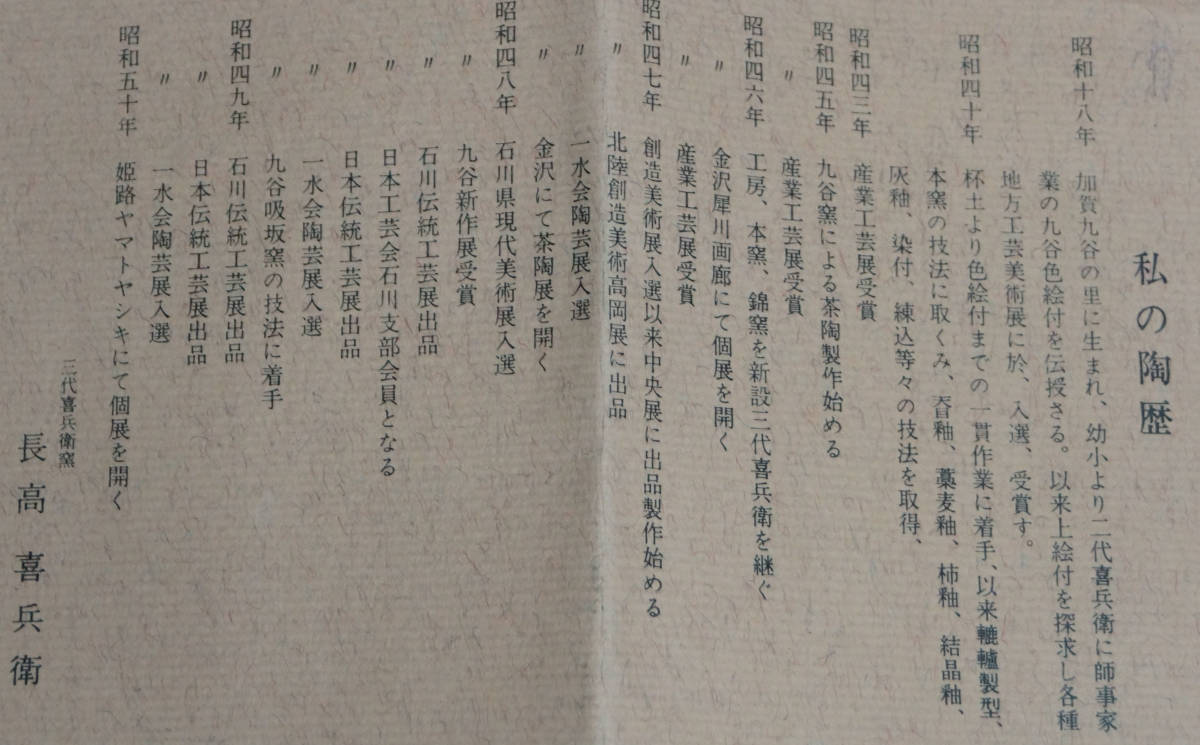 私の陶歴
昭和十八年 加賀九谷の里に生まれ、幼小より二代喜兵衛に師事家
業の九谷色絵付を伝授さる。以来上絵付を探求し各種
地方工芸美術展に於、入選、受賞す。
昭和四十年 杯土より色絵付までの一貫作業に着手、以来轆轤製型、
本窯の技法に取くみ、釉、藁麦釉、柿釉、結晶釉、
灰釉、染付、練込等々の技法を取得、
昭和四三年 産業工芸展受賞
昭和四五年 九谷窯による茶陶製作始める
〃 産業工芸展受賞
昭和四六年 工房、本窯、錦窯を新設三代喜兵衛を継ぐ
〃 金沢犀川画廊にて個展を開く
〃 産業工芸展受賞
昭和四七年 創造美術展入選以来中央展に出品製作始める
〃 北陸創造美術高岡展に出品
〃 一水会陶芸展入選
〃 金沢にて茶陶展を開く
昭和四八年 石川県現代美術展入選
〃 九谷新作展受賞
〃 石川伝統工芸展出品
〃 日本工芸会石川支部会員となる
〃 日本伝統工芸展出品
〃 一水会陶芸展入選
〃 九谷吸坂窯の技法に着手
昭和四九年 石川伝統工芸展出品
〃 日本伝統工芸展出品
〃 一水会陶芸展入選
昭和五十年 姫路ヤマトヤシキにて個展を開く
三代喜兵衛窯
長高 喜兵衛